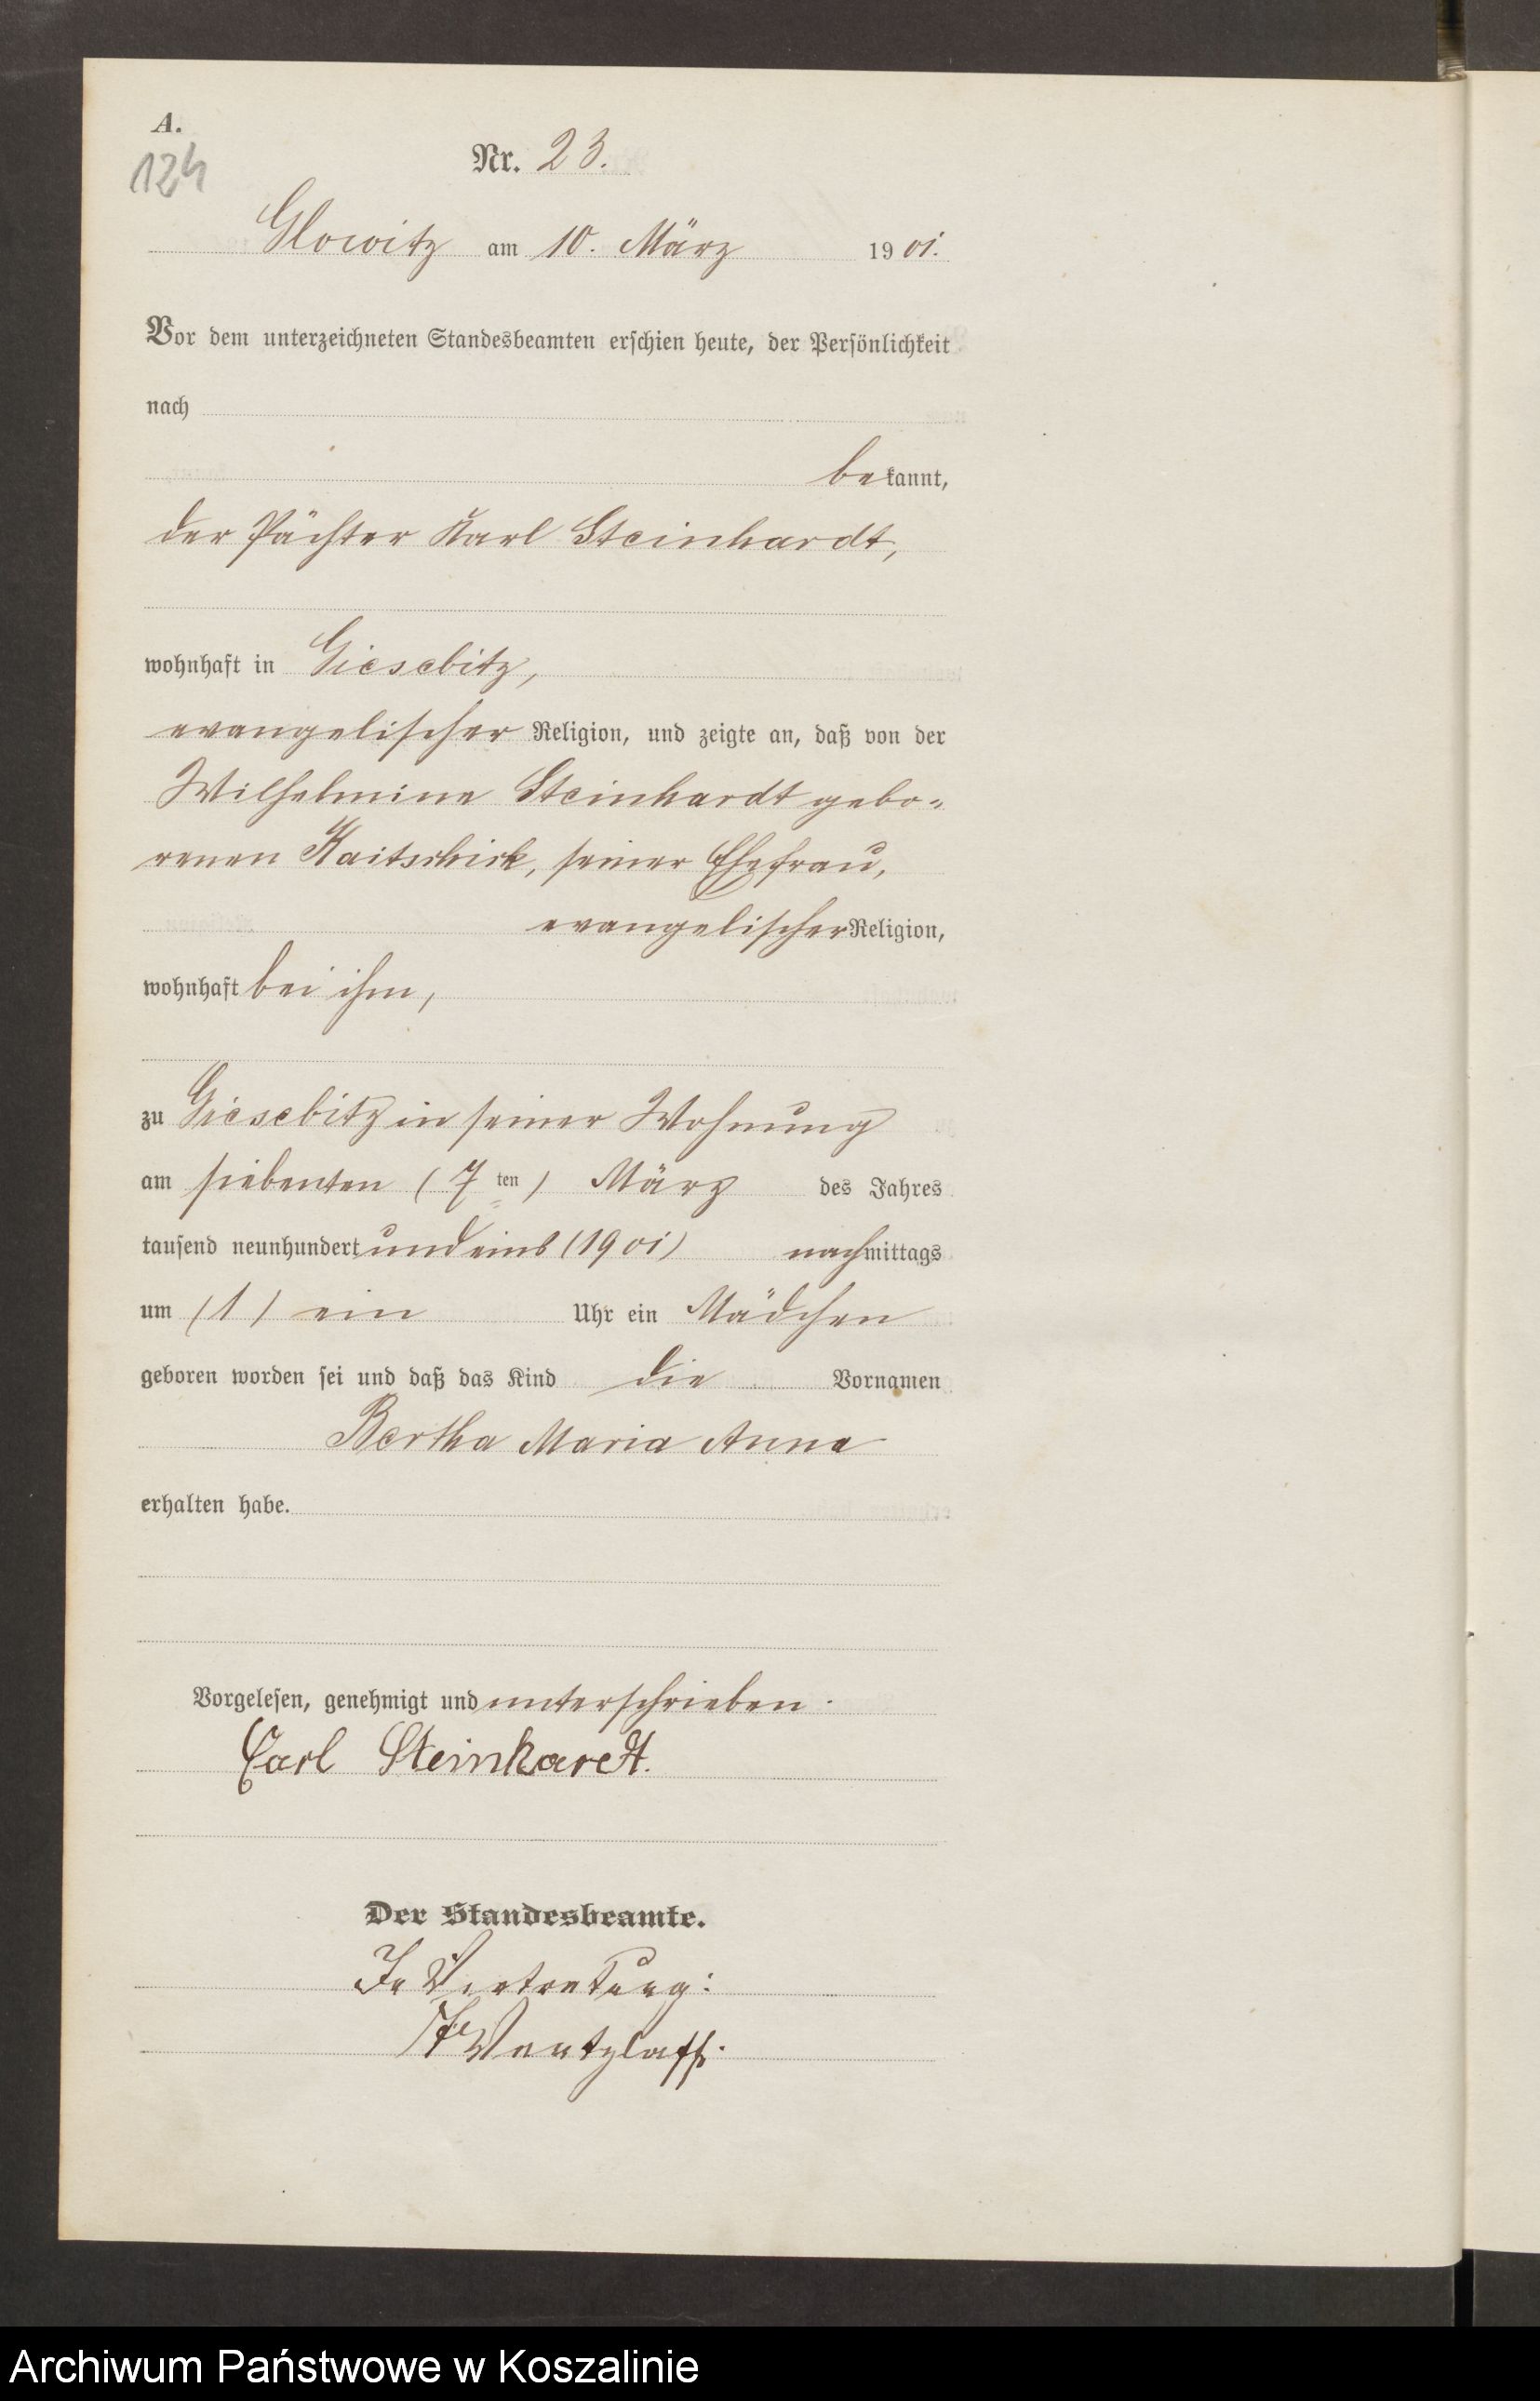 A.
124
Nr. 23.
Glowitz am 10. März 1901.
Vor dem unterzeichneten Standesbeamten erschien heute, der Persönlichkeit
nach
bekannt,
der Pächter Karl Steinhardt,
wohnhaft in Giesebitz,
evangelischer Religion, und zeigte an, daß von der
Wilhelmine Steinhardt gebo-
renen Kaitschick, seiner Ehefrau,
evangelischer Religion,
wohnhaft bei ihm,
zu Giesebitz in seiner Wohnung
am siebenten (7ten) März des Jahres
tausend neunhundert und eins (1901) nachmittags
um (1) ein Uhr ein Mädchen
geboren worden sei und daß das Kind die Vornamen
Bertha Maria Anna
erhalten habe.
Vorgelesen, genehmigt und unterschrieben.
Carl Steinhardt.
Der Standesbeamte.
In Vertretung:
Wentzlaff.
Archiwum Państwowe w Koszalinie